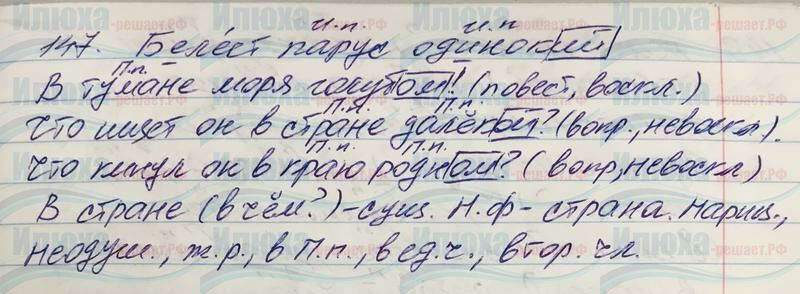 И.п. И.п
147. Белеет парус одинокий
П.п.
В тумане моря голубом! (повест, воскл.)
П.п. П.п.
Что ищет он в стране далёкой? (вопр., невоскл).
П.п. П.п.
Что кинул он в краю родном? (вопр, невоскл)
В стране (в чём?) - сущ. Н.ф - страна. нариц.,
неодуш., ж.р., в П.п., в ед.ч., втор. чл.
Илюха-решает.РФ